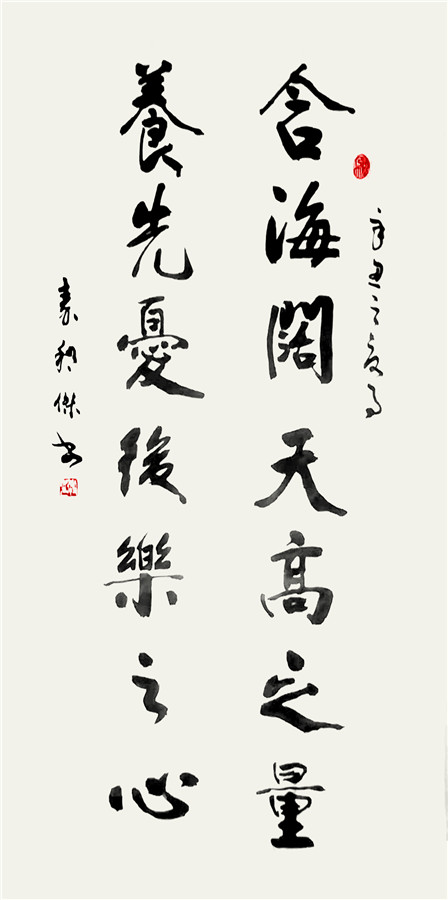 含海闊天高之量
養先憂後樂之心
辛丑之夏月